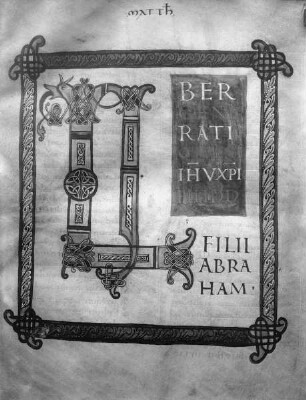 MATTH
LI
BER
RATI
IH̅UXP̅I
FILII
ABRA
HAM·